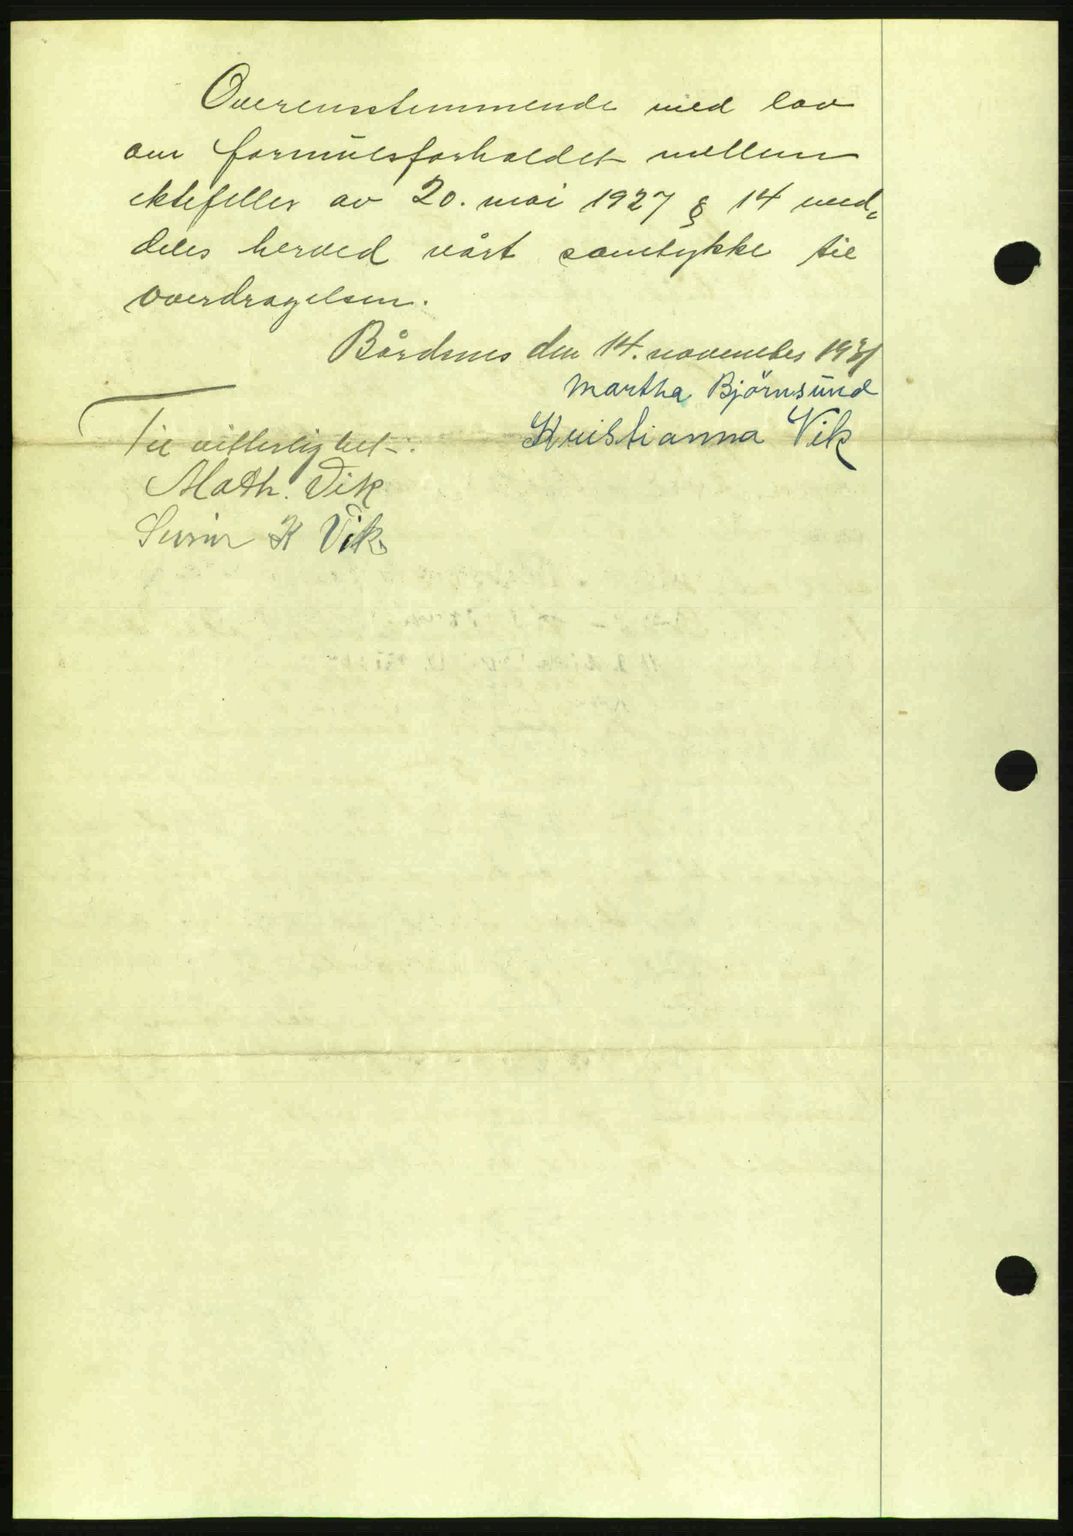 Overensstemmende med lov
om formuesforholdet mellem
ektefeller av 20. mai 1927 § 14 med-
deles herved vårt samtykke til
overdragelsen.
Bårdsnes den 14. november 1931
Martha Björnsund
Kristianna Vik
Til vitterlighet:
Math. Vik
K Vik